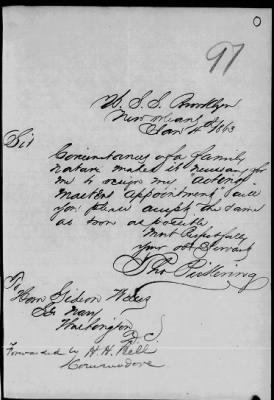 O
97
U. S. S. Brooklyn
New Orleans
Jan 4th 1863
Sir
Circumstances of a family
nature makes it necessary for
me to resign my "Acting
Masters Appointment" will
you please accept the same
as soon as possible
Most Respectfully
Your obt Servant
Thos Pickering
To
Hon Gideon Welles
Sec Navy
Washington
D C
Forwarded by H. H. Bell
Commodore